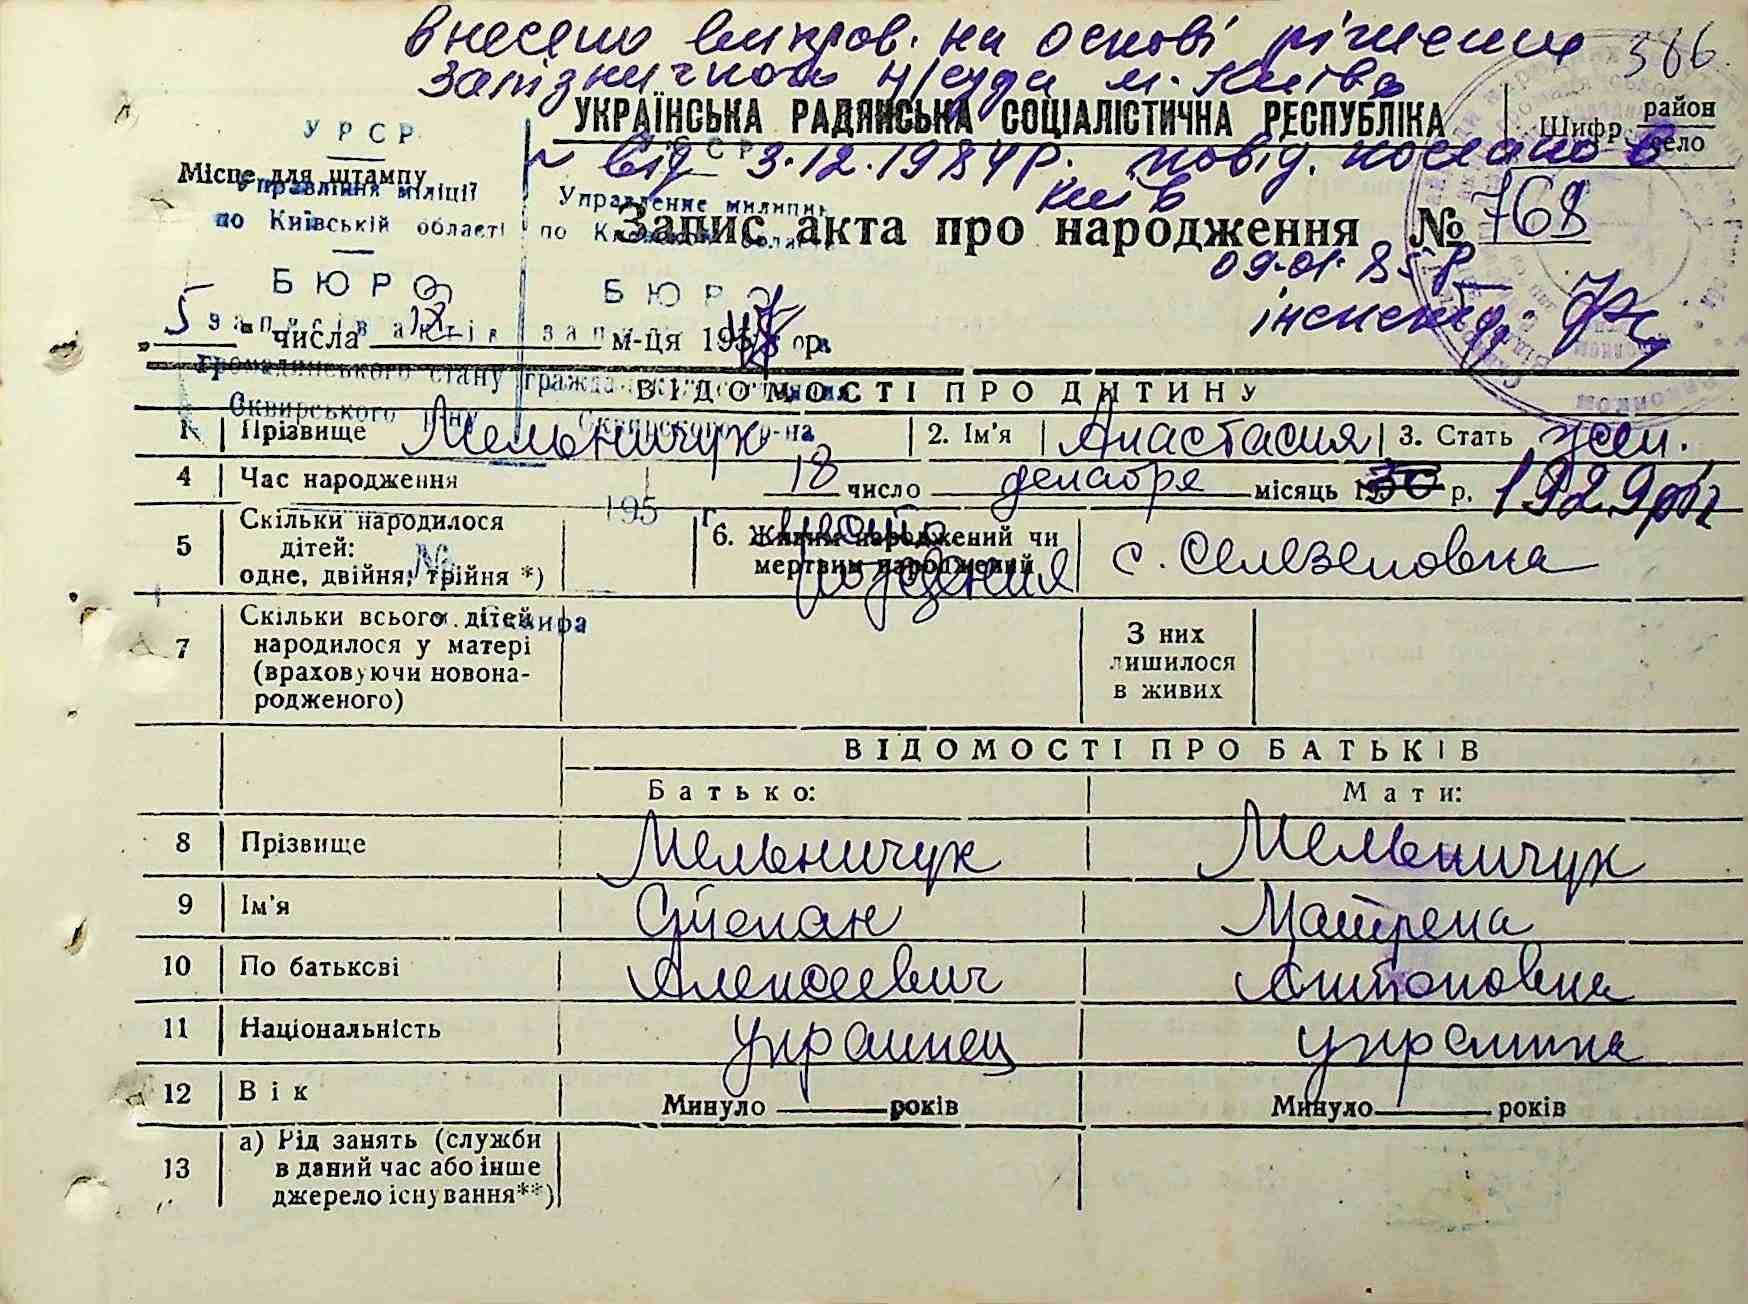 Внесено виправ. на основі рішення 366
Залізничного н/суда м. Києва
УКРАЇНСЬКА РАДЯНСЬКА СОЦІАЛІСТИЧНА РЕСПУБЛІКА Шифр район село
від 3.12.1984 р. повід. послано в
Київ
УРСР
Місце для штампу
Управління міліції
по Київській області
БЮРО
записів актів
громадянського стану
Сквирського р-ну
Управление милиции
по
БЮРО
Сквирского р-на
195 г.
№
м. Сквира
Запис акта про народження № 768
09.01.85 р.
інспектор
„5" числа 12 м-ця 195 р.
ВІДОМОСТІ ПРО ДИТИНУ
1 Прізвище Мельничук 2. Ім'я Анастасия 3. Стать жен.
4 Час народження 18 число декабря місяць 1930 р. 1929
5 Скільки народилося дітей: одне, двійня, трійня *) 6. Живим народжений чи мертвим народжений
место рождения с. Селезеновка
7 Скільки всього дітей народилося у матері (враховуючи новонародженого) З них лишилося в живих
ВІДОМОСТІ ПРО БАТЬКІВ
Батько: Мати:
8 Прізвище Мельничук Мельничук
9 Ім'я Степан Матрена
10 По батькові Алексеевич Антоновна
11 Національність украинец украинка
12 Вік Минуло років Минуло років
13 а) Рід занять (служби
в даний час або інше
джерело існування**)